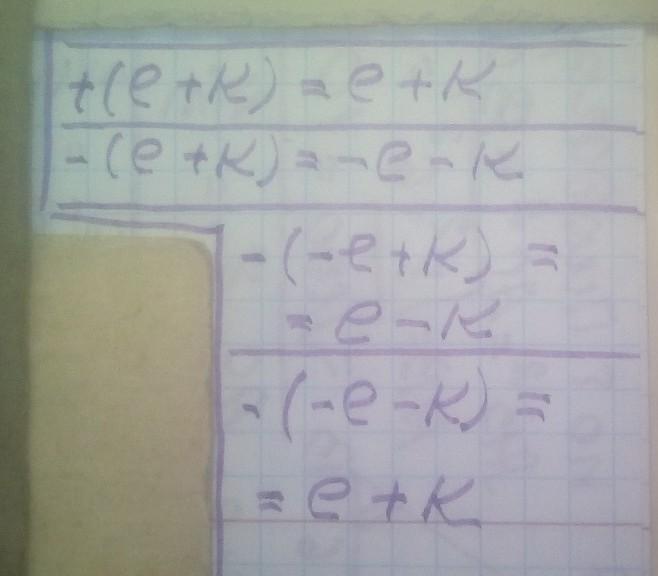 +(e+k) = e+k
-(e+k) = -e-k
-(-e+k) =
= e-k
-(-e-k) =
= e+k